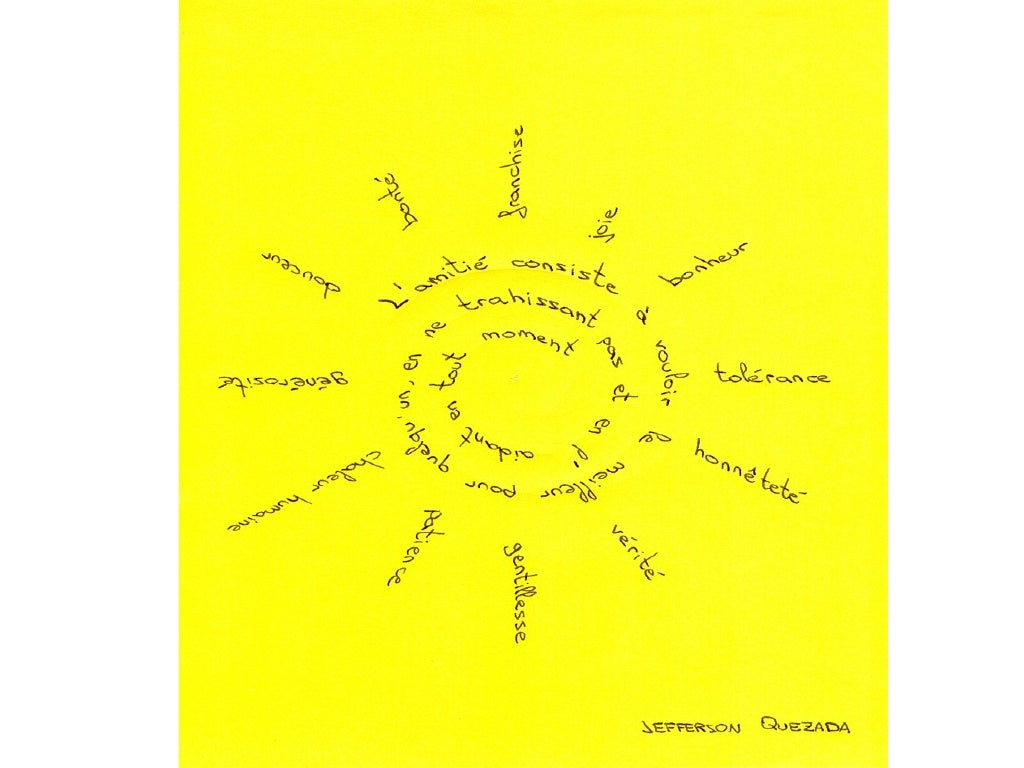 L'amitié consiste à vouloir le meilleur pour quelqu'un, en ne trahissant pas et en l'aidant en tout moment
franchise
joie
bonheur
tolérance
honnêteté
vérité
gentillesse
patience
chaleur humaine
générosité
douceur
bonté
JEFFERSON QUEZADA